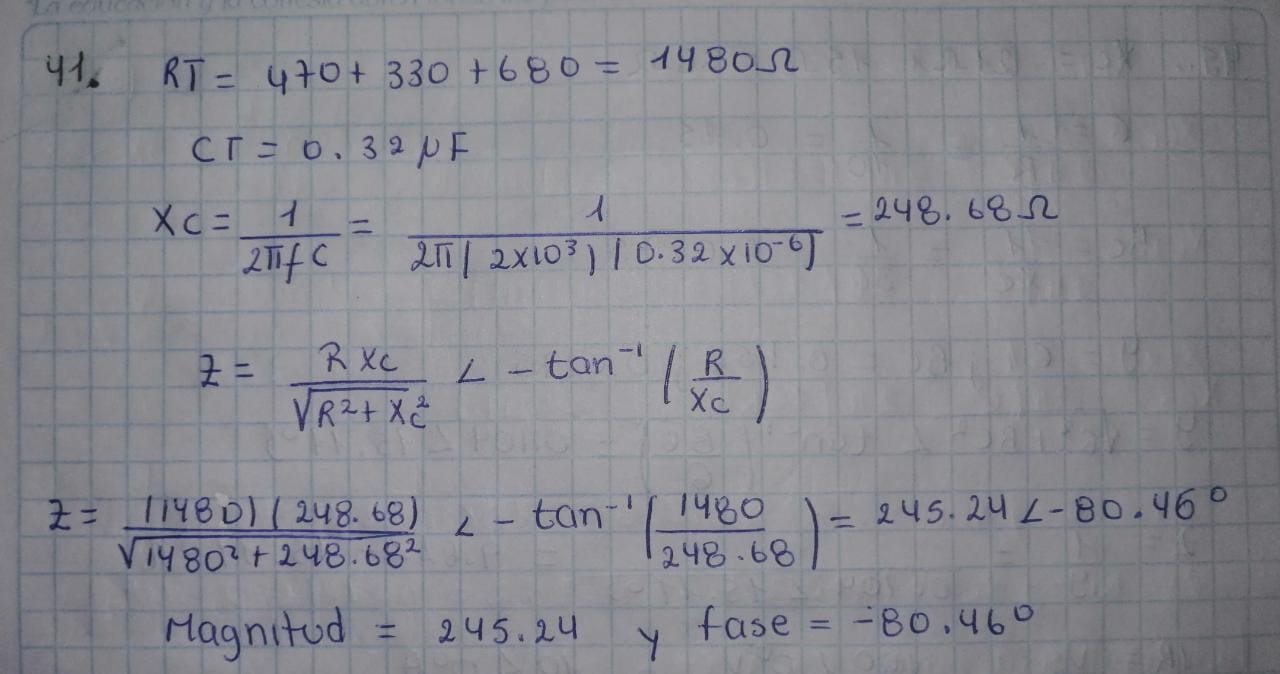 41. RT = 470 + 330 + 680 = 1480Ω
CT = 0.32 μF
Xc = 1 / 2πfC = 1 / 2π(2x10³)(0.32x10⁻⁶) = 248.68Ω
Z = R Xc / √R² + Xc² ∠ - tan⁻¹ (R / Xc)
Z = (1480)(248.68) / √1480² + 248.68² ∠ - tan⁻¹ (1480 / 248.68) = 245.24 ∠-80.46°
Magnitud = 245.24 y fase = -80.46°